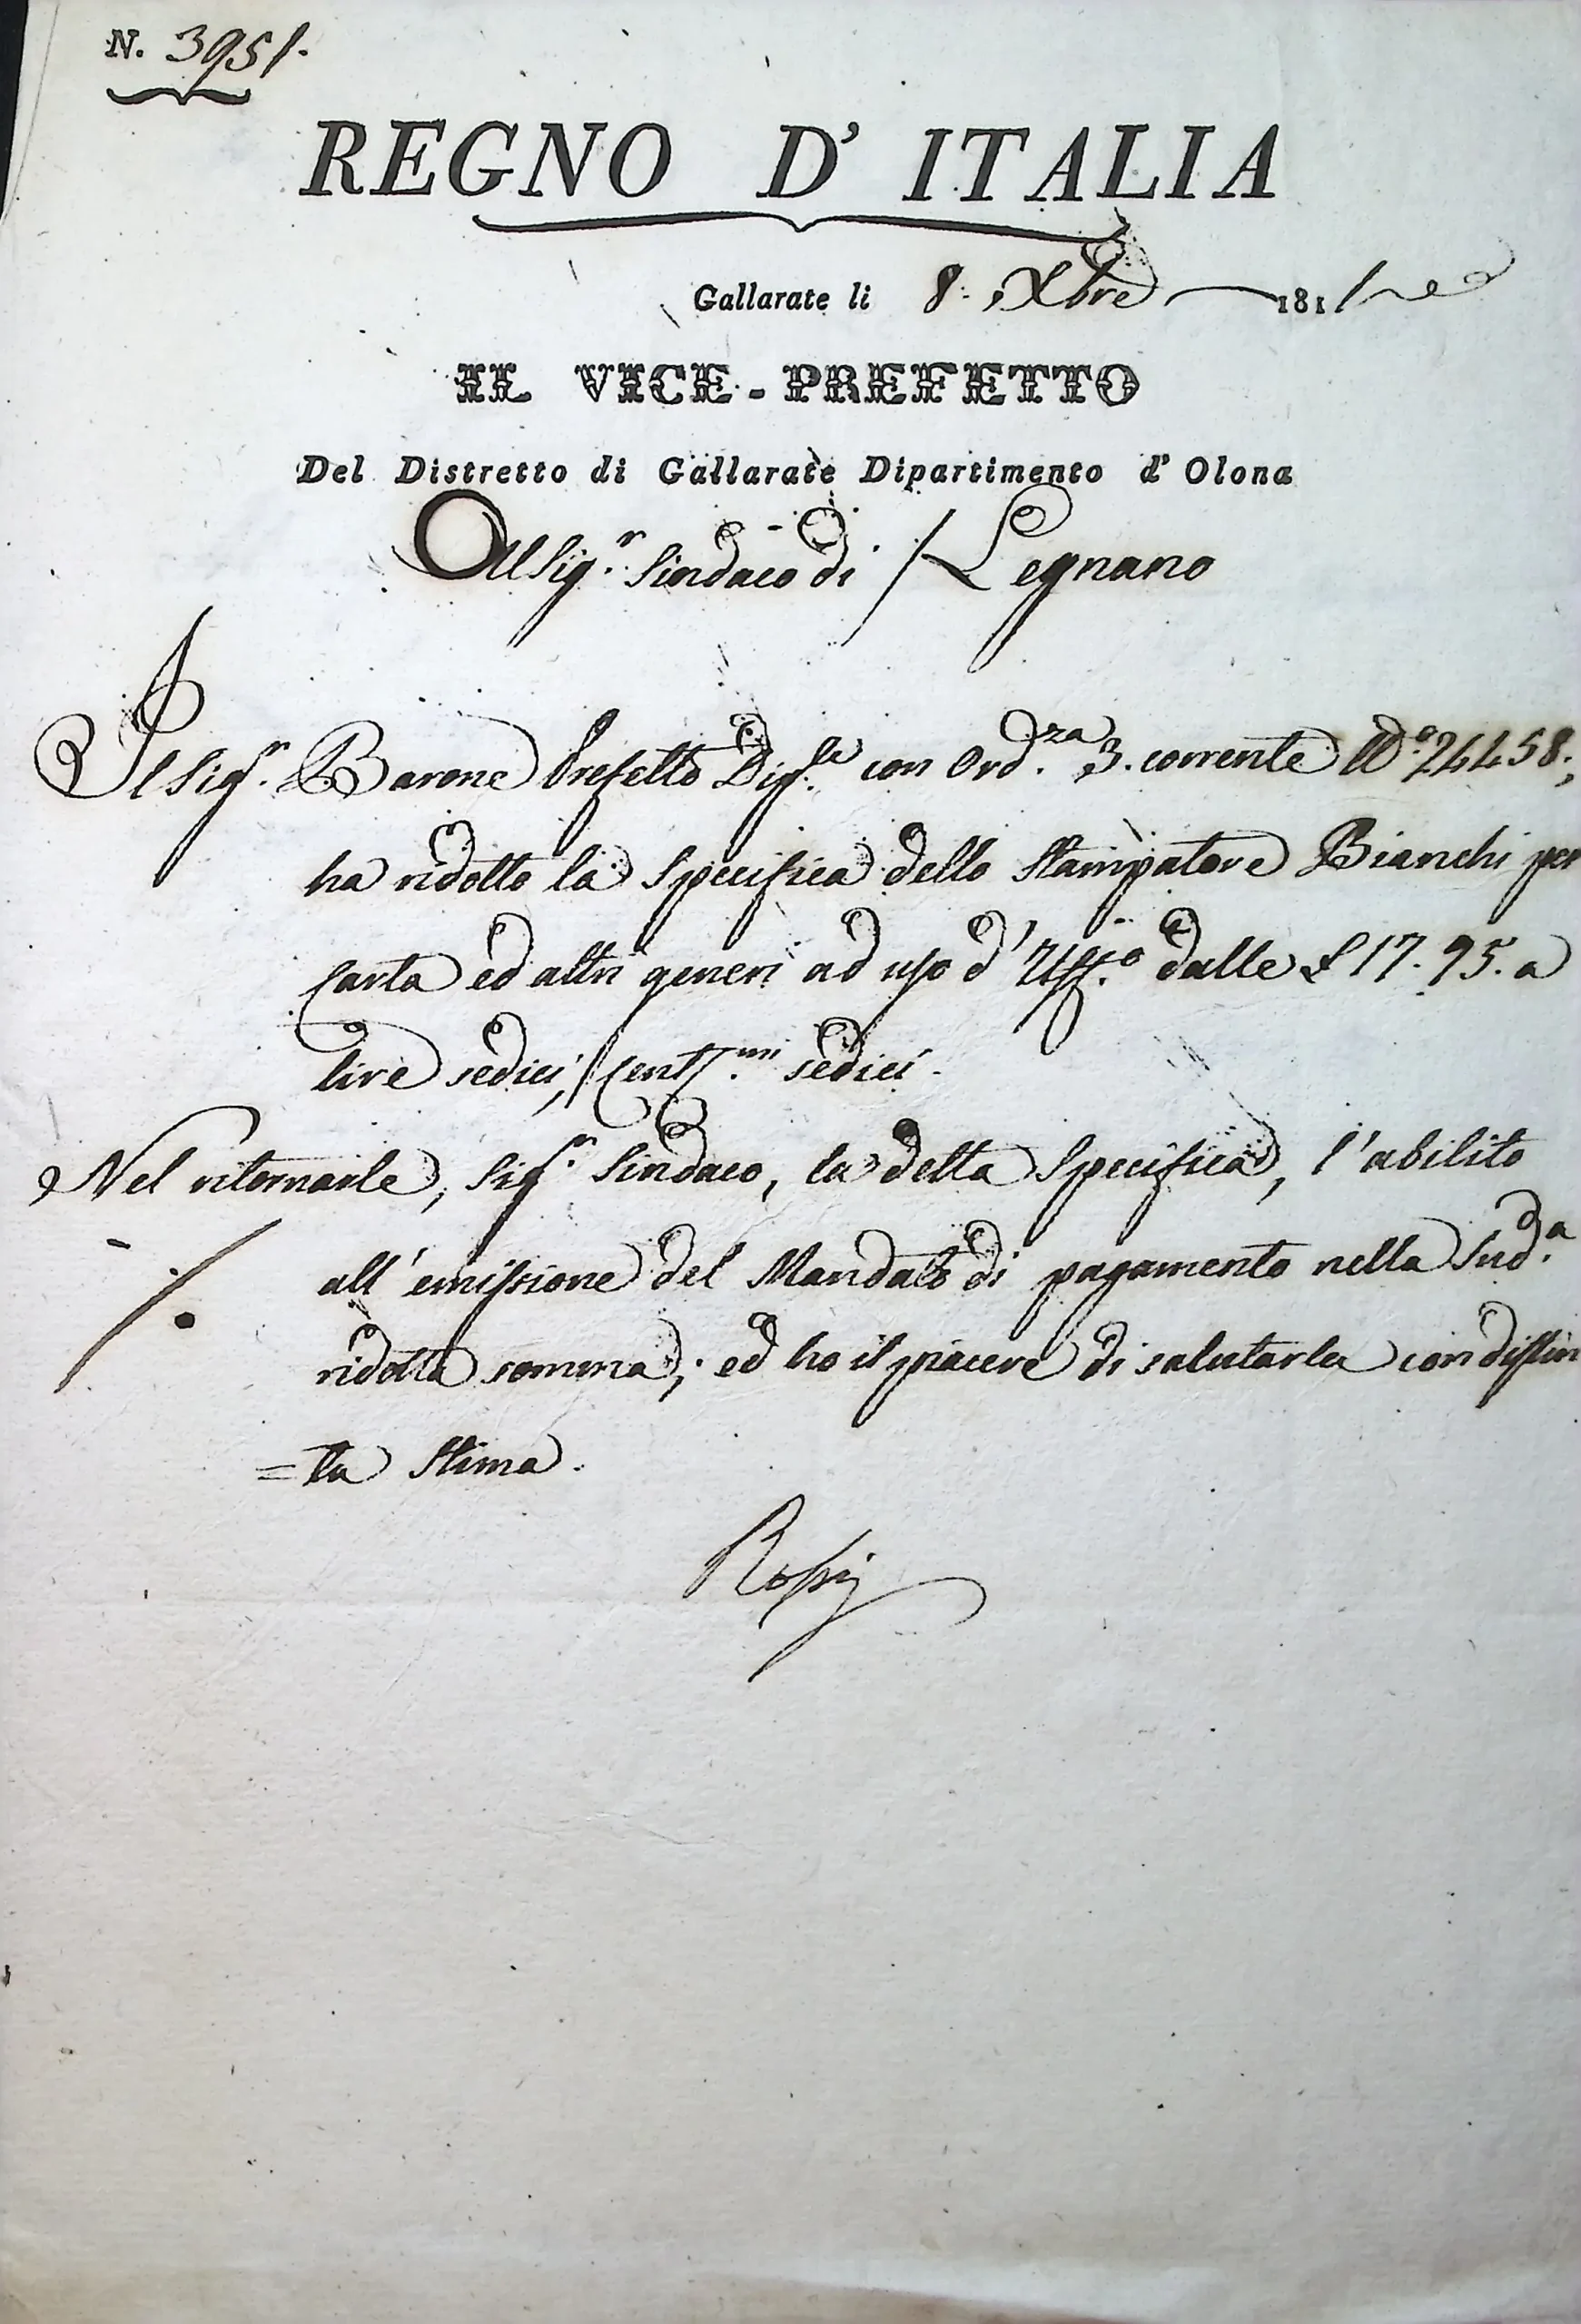 N. 3951.
REGNO D' ITALIA
Gallarate li 8. Xbre 1811
IL VICE-PREFETTO
Del Distretto di Gallarate Dipartimento d' Olona
Al Sig.r Sindaco di Legnano
Il Sig.r Barone Prefetto con Ord.za 3. corrente N.o 24458.,
ha ridotto la Specifica dello Stampatore Bianchi per
Carta ed altri generi ad uso d'Uff.o dalle £ 17. 95. a
lire sedici, Cent.mi sedici.
Nel ritornarle, Sig.r Sindaco, la detta Specifica, l'abilito
all'emissione del Mandato di pagamento nella Sud.a
ridotta somma; ed ho il piacere di salutarla con distin
=ta Stima.
Rossi